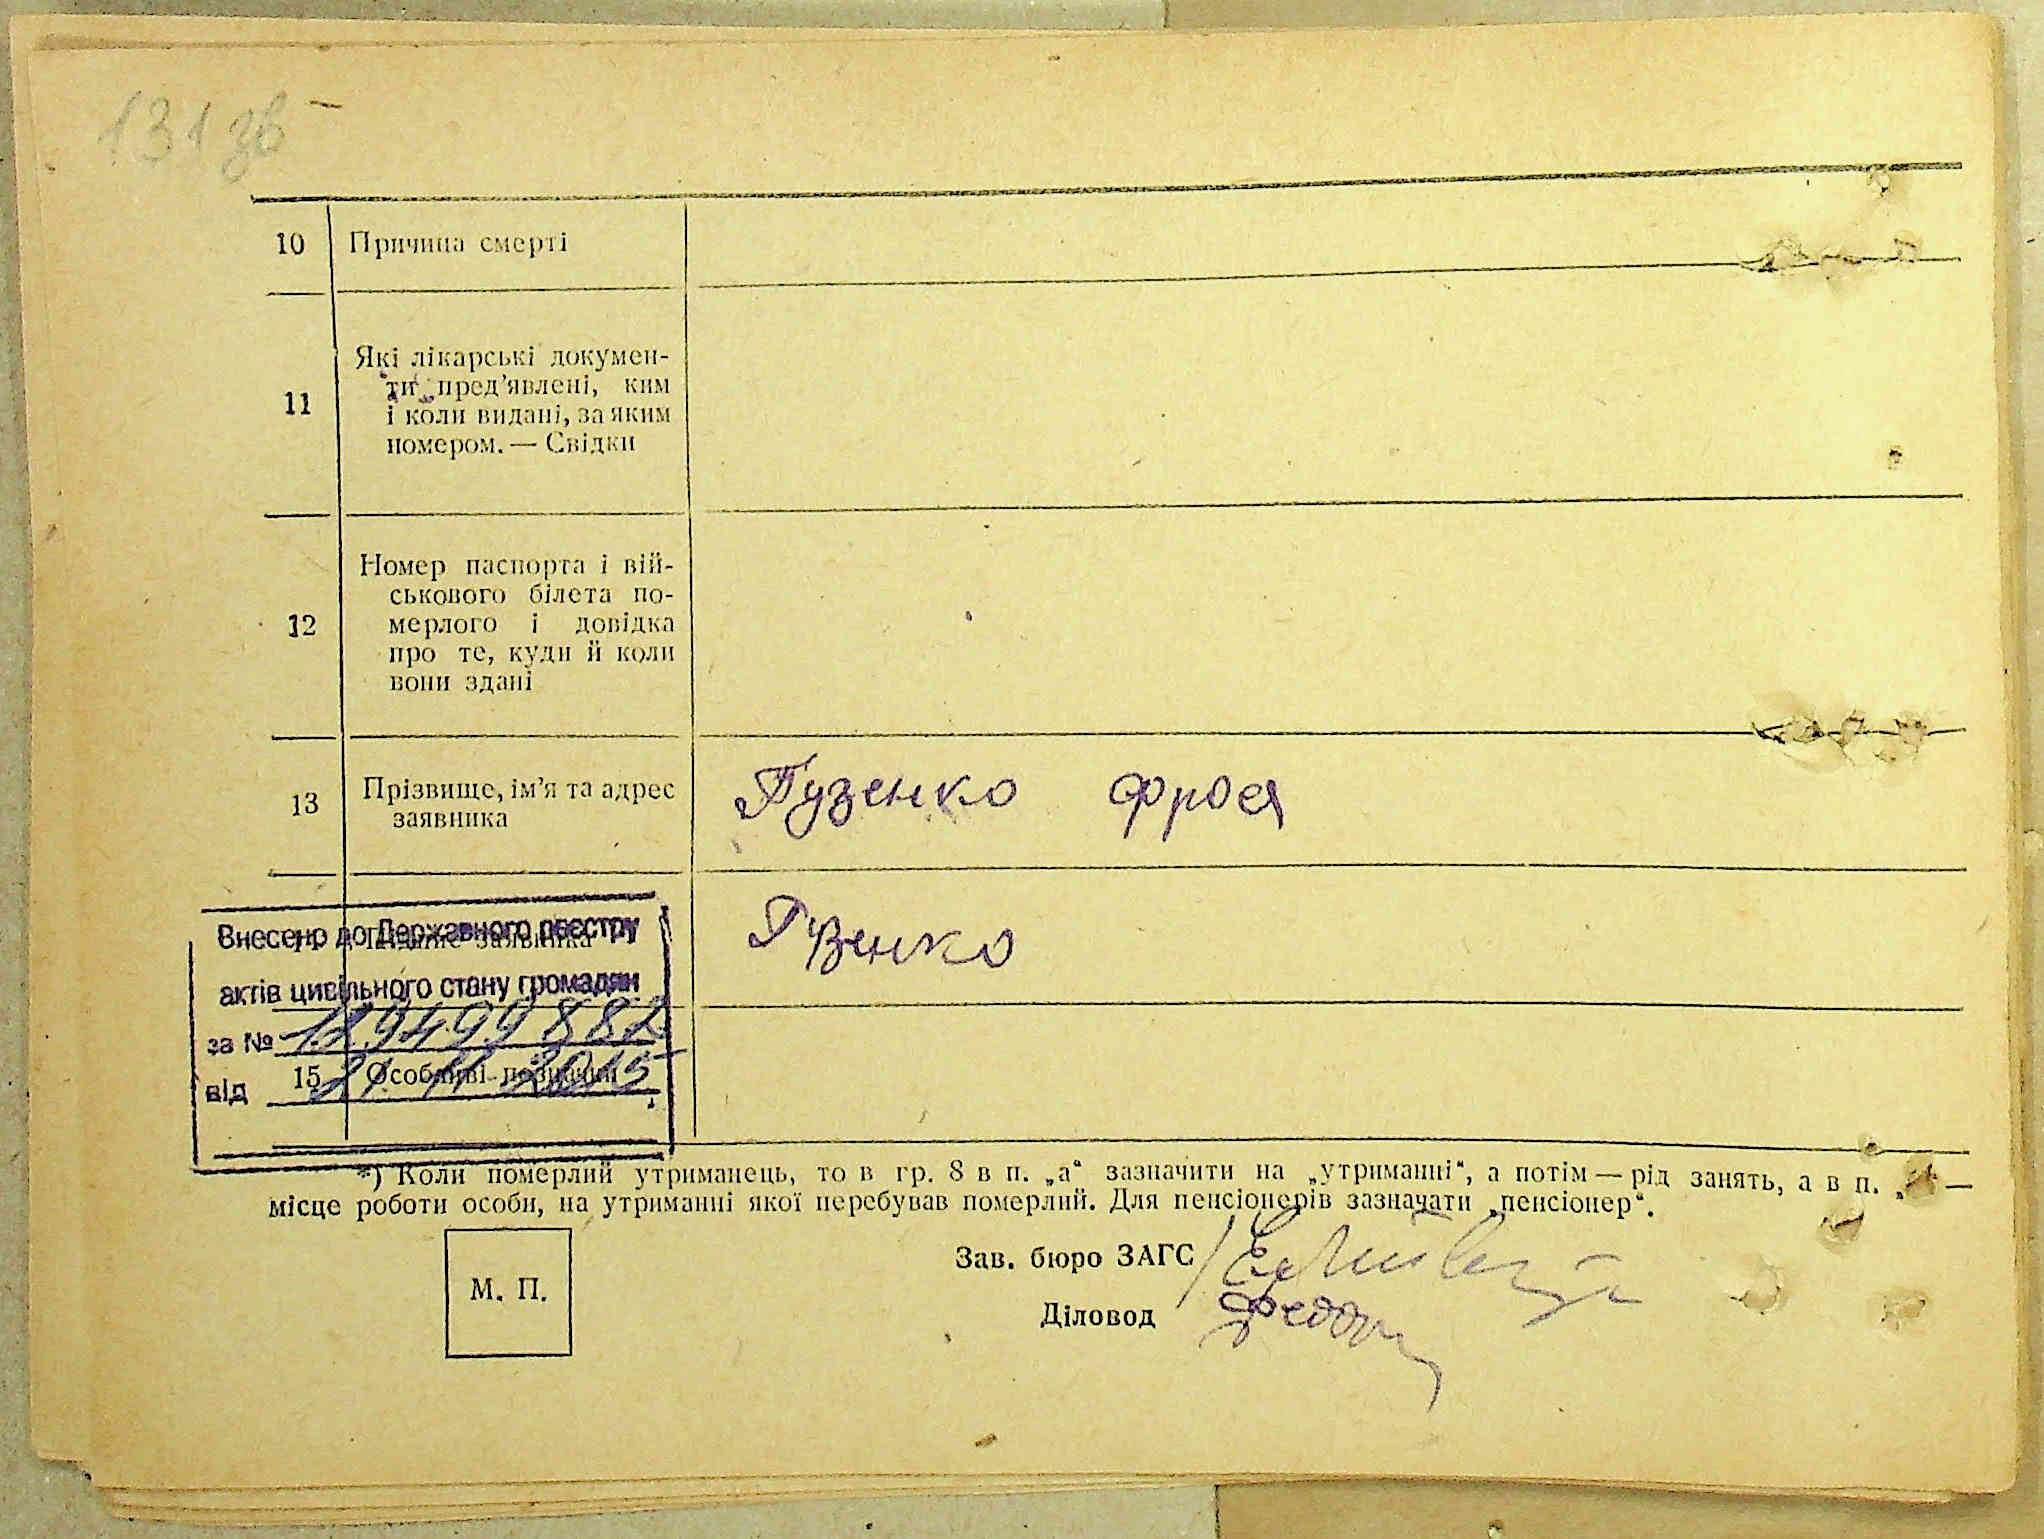 131 зв
10 Причина смерті
Які лікарські докумен-
ти пред'явлені, ким
11 і коли видані, за яким
номером. — Свідки
Номер паспорта і вій-
ськового білета по-
12 мерлого і довідка
про те, куди й коли
вони здані
13 Прізвище, ім'я та адрес
заявника
Гузенко Фрося
Внесено до Державного реєстру
заявника
Гузенко
актів цивільного стану громадян
за № 12949988
від 21. 11 2015
15 Особливі позначки
*) Коли померлий утриманець, то в гр. 8 в п. „а“ зазначити на „утриманні“, а потім — рід занять, а в п. —
місце роботи особи, на утриманні якої перебував померлий. Для пенсіонерів зазначати „пенсіонер“.
М. П.
Зав. бюро ЗАГС
Діловод